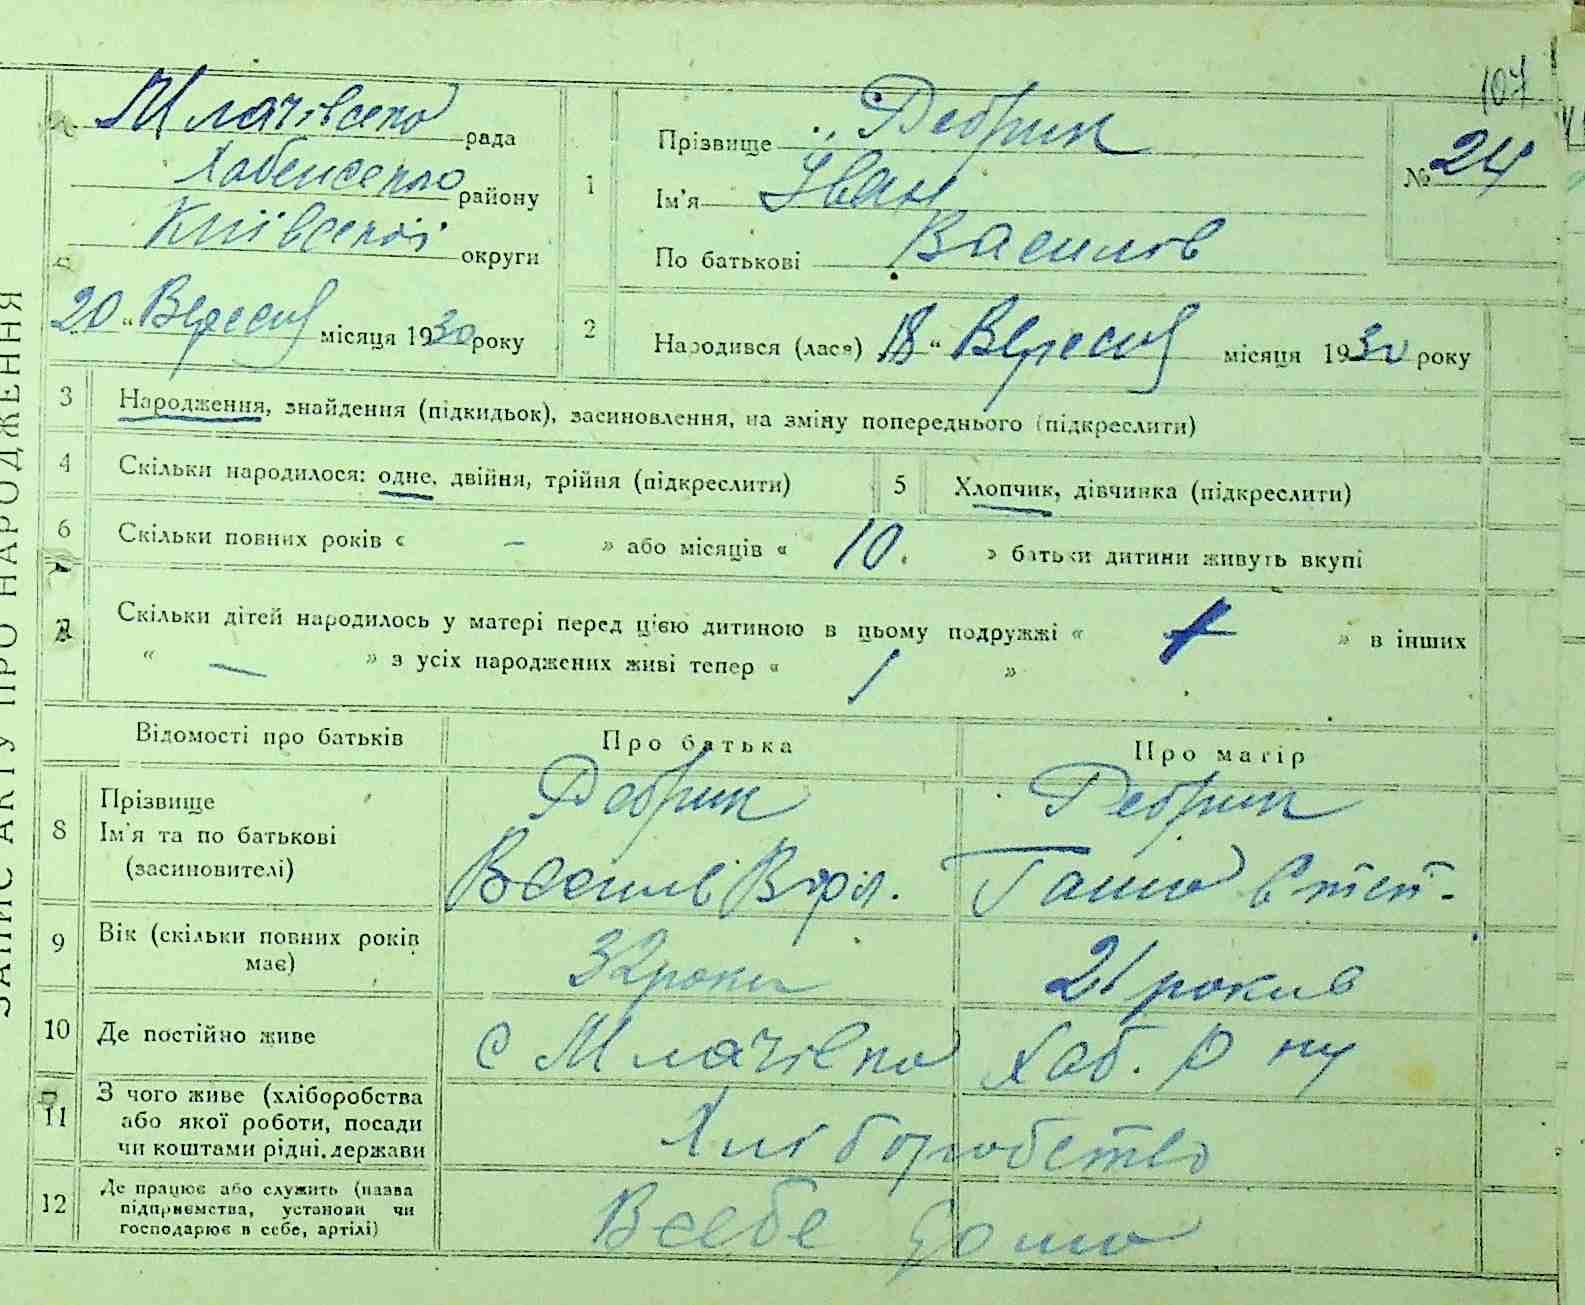 107
Млачівська рада
Хабенського району
Київської округи
20 „ Вересня місяця 1930 року
ЗАПИС АКТУ ПРО НАРОДЖЕННЯ
1
Прізвище Дебрик
Ім'я Іван
По батькові Василів
№ 24
2 Народився (лася) 18 „ Вересня місяця 1930 року
3 Народження, знайдення (підкидьок), засиновлення, на зміну попереднього (підкреслити)
4 Скільки народилося: одне, двійня, трійня (підкреслити)
5 Хлопчик, дівчинка (підкреслити)
6 Скільки повних років « – » або місяців « 10. » батьки дитини живуть вкупі
7 Скільки дітей народилось у матері перед цією дитиною в цьому подружжі « » в інших
« — » з усіх народжених живі тепер « 1 »
Відомості про батьків Про батька Про матір
8 Прізвище Дебрик Дебрик
Ім'я та по батькові Василь Ганна
(засиновителі)
9 Вік (скільки повних років 32 роки 21 років
має)
10 Де постійно живе с Млачівка Хаб. р ну
11 З чого живе (хліборобства
або якої роботи, посади Хліборобство
чи коштами рідні, держави
12 Де працює або служить (назва
підприємства, установи чи В себе дома
господарює в себе, артілі)